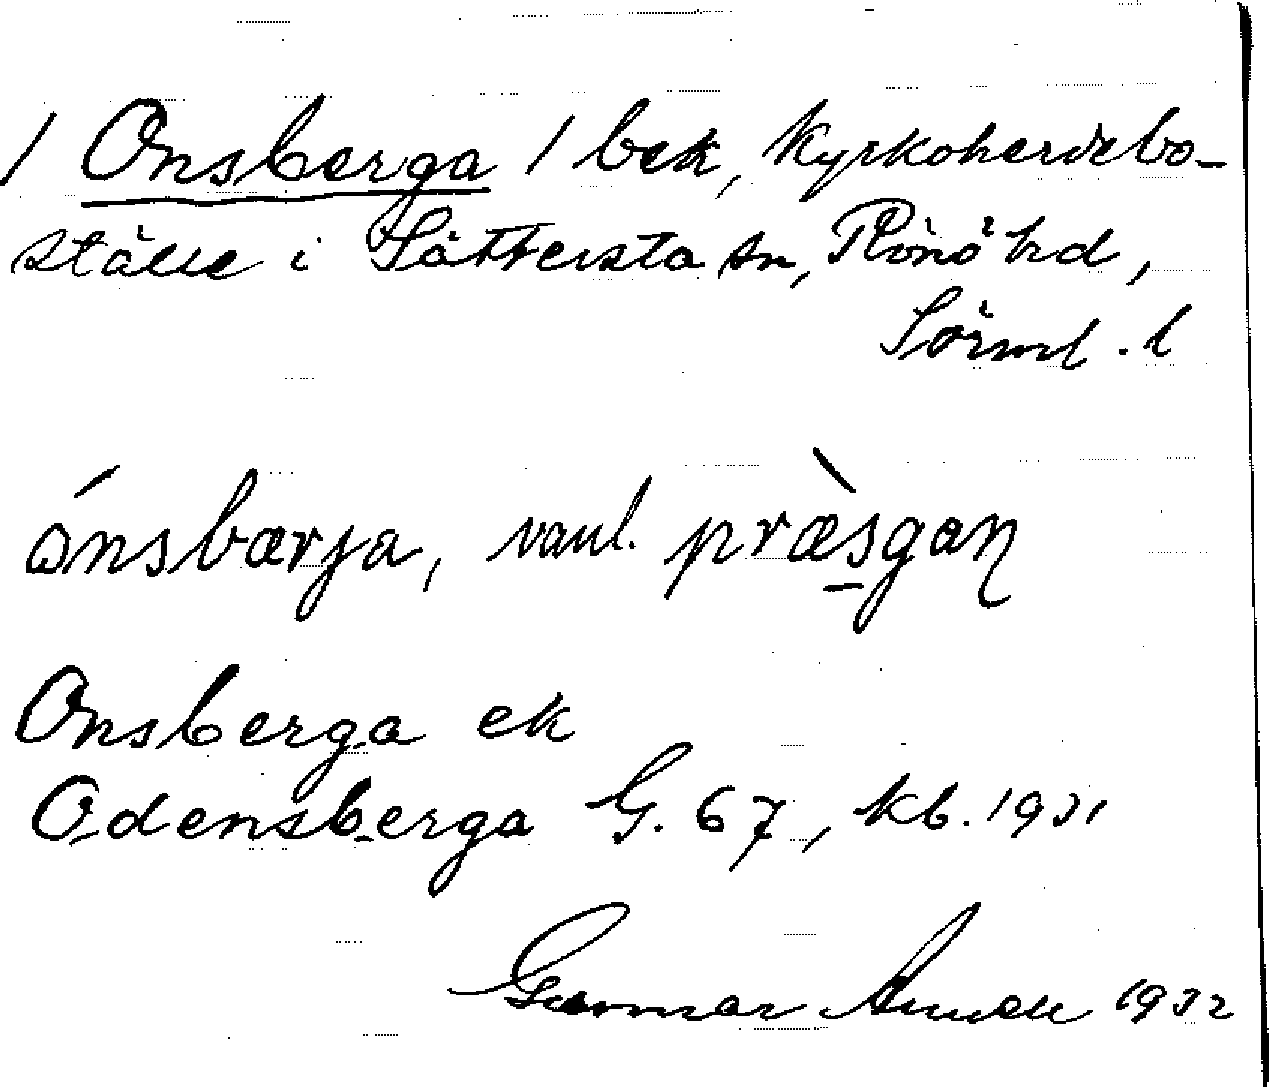 / Onsberga / bek, kyrkoherdebo-
ställe i Sättersta sn, Rönö hd,
Sörml. l
ónsbærja, vanl. præ̀sgaṇ
Onsberga ek
Odensberga G. 67, kb. 1931
Gunnar 1932